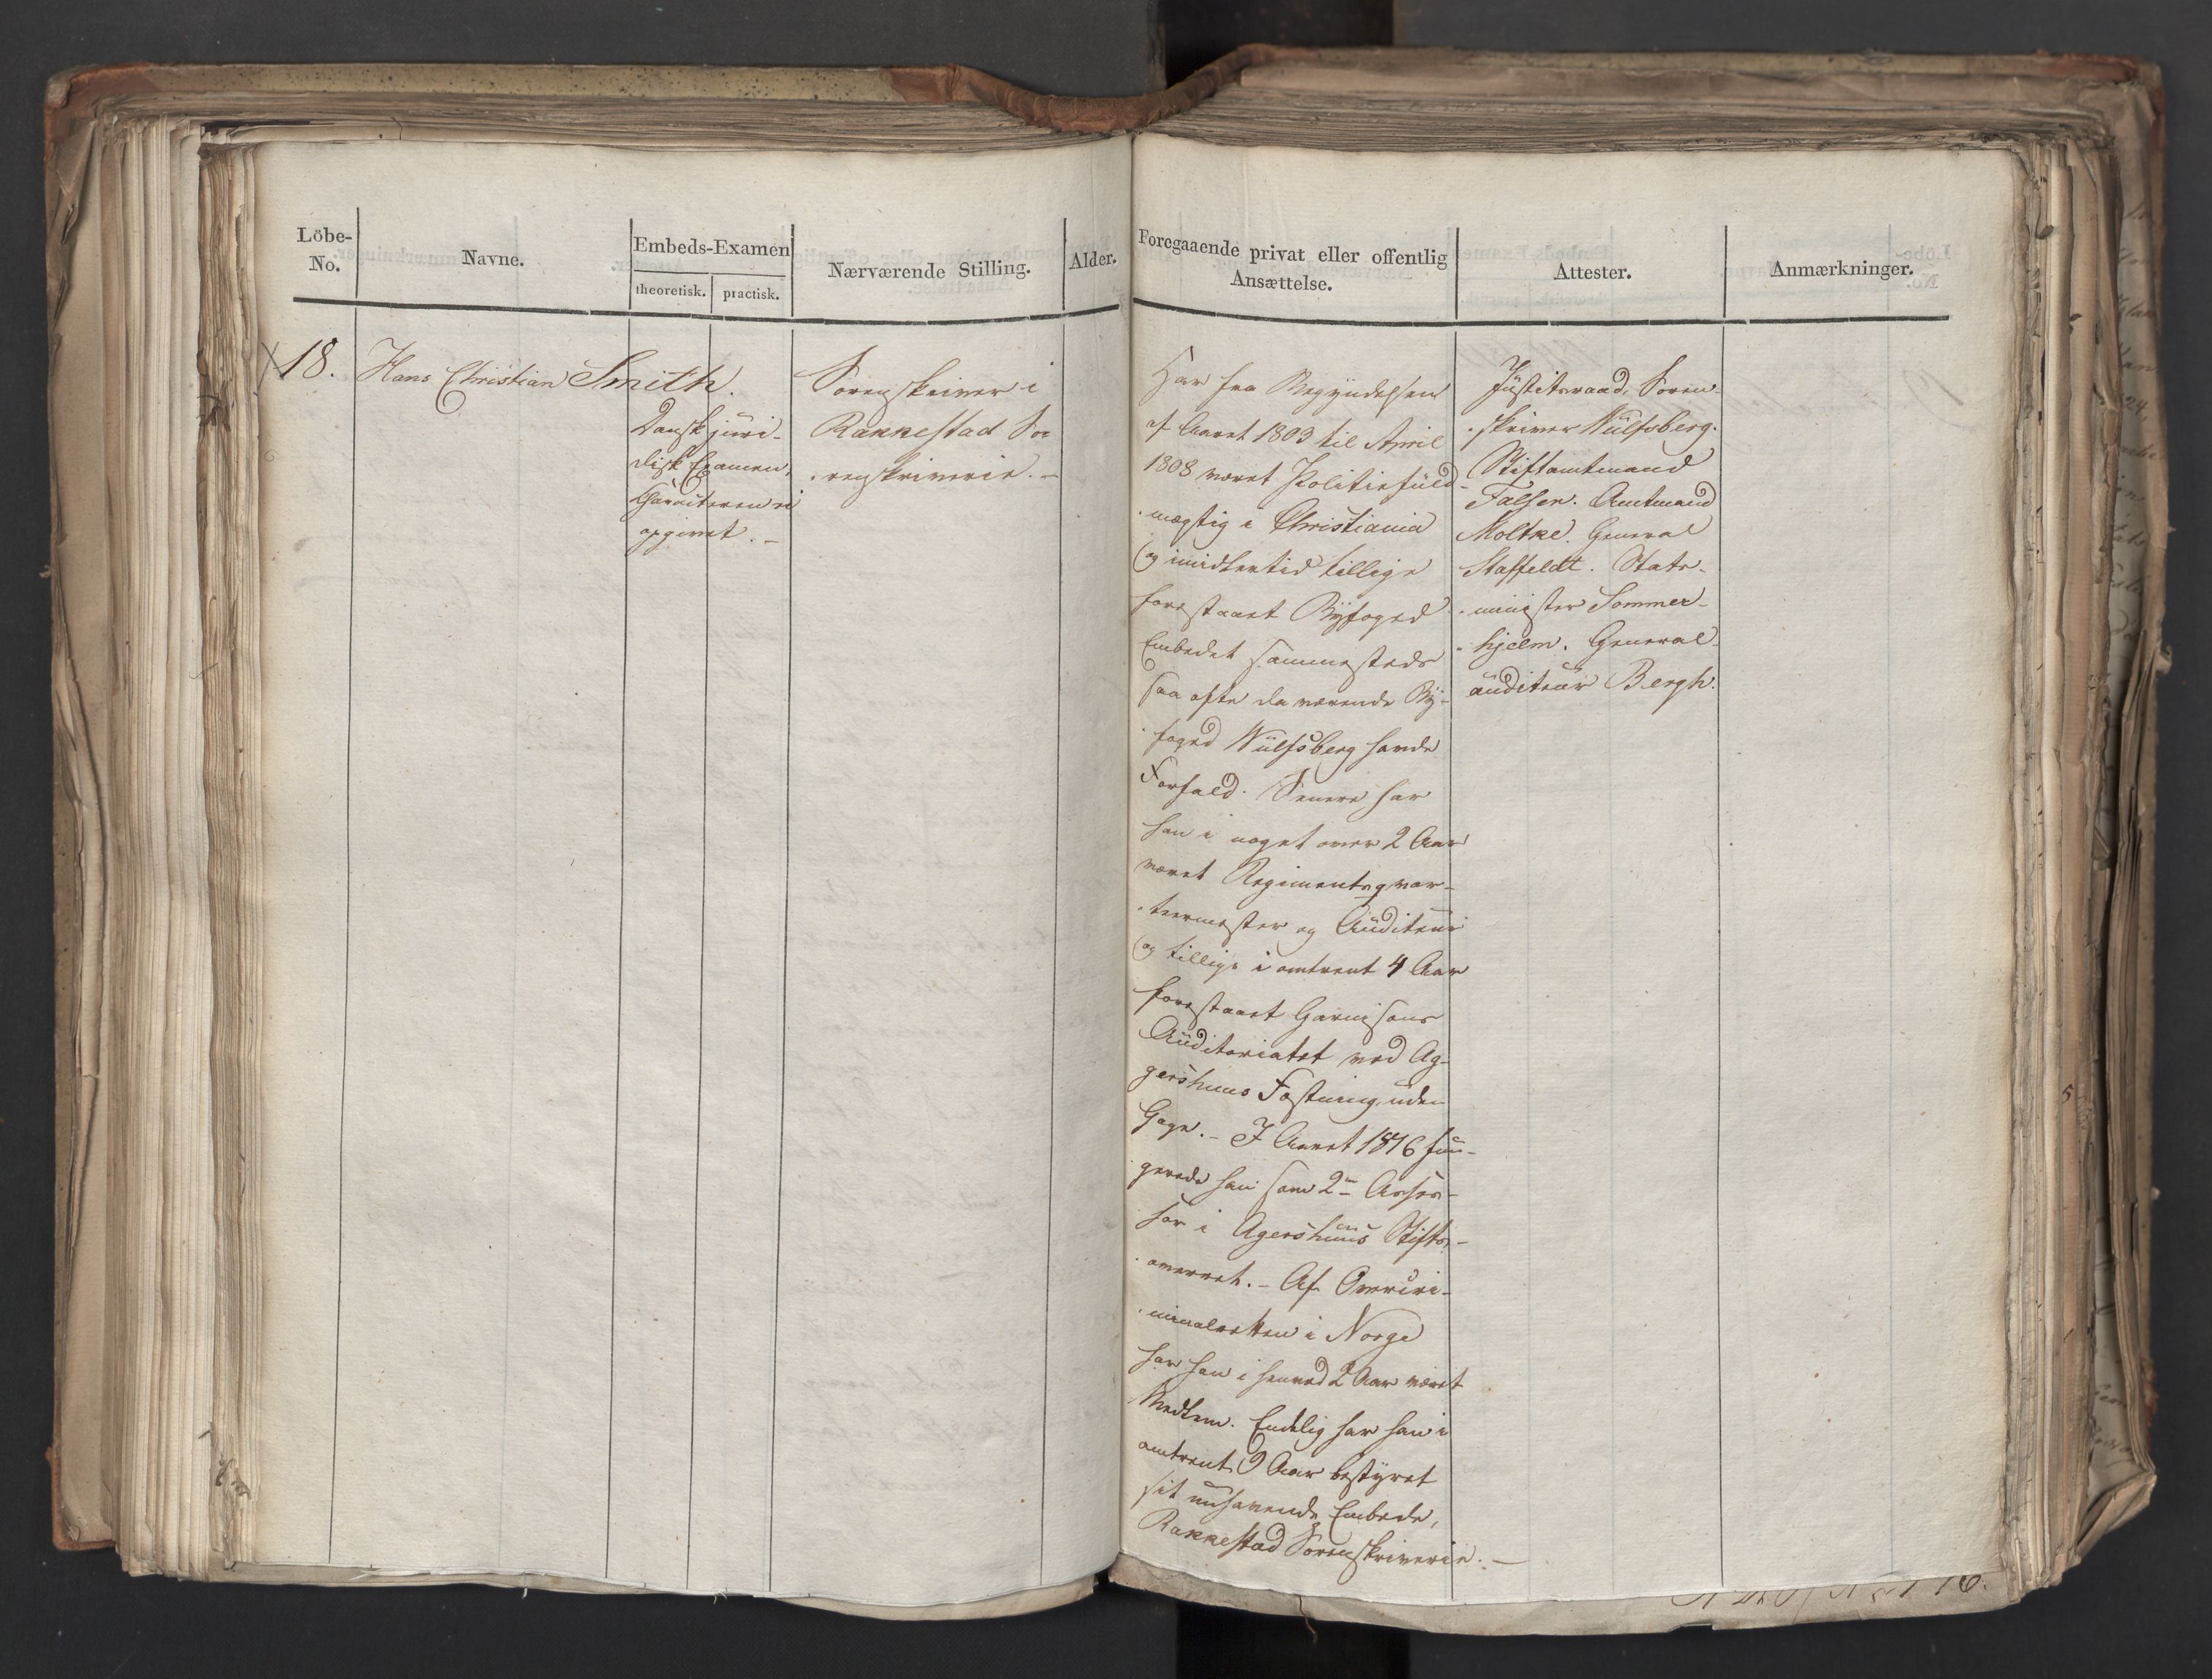 Löbe-
No.
Navne.
Embeds-Examen
theoretisk.
practisk.
Nærværende Stilling.
Alder.
18.
Hans Christian Smith.
Dansk juri-
disk Examen,
Characteren ei
opgivet. -
Sorenskriver i
Rakkestad So-
renskriverie. -
Foregaaende privat eller offentlig
Ansættelse.
Attester.
Anmærkninger.
Har fra Begyndelsen
af Aaret 1803 til April
1808 været Politiefuld-
mægtig i Christiania
og imidlertid tillige
forestaaet Byfoged
Embedet sammesteds
saa ofte da værende By-
foged Wulfsberg havde
Forfald. Senere har
han i noget over 2 Aar
været Regimentsqvar-
teermester og Auditeur
og tillige i omtrent 4 Aar
forestaaet Garnisons
Auditoriatet ved Ag-
gershuus Fæstning, uden
Gage. - I Aaret 1816 fun-
gerede han som 2en Asses-
sor i Agershuus Stifts-
overret. - Af Overcri-
minalretten i Norge
har han i henved 2 Aar været
Medlem. Endelig har han i
omtrent 9 Aar bestyret
sit nuhavende Embede,
Rakkestad Sorenskriverie. -
Justitsraad, Soren-
skriver Wulfsberg.
Stiftamtmand
Falsen. Amtmand
Moltke. General
Staffeldt. Stats-
minister Sommer-
hjelm. General-
auditeur Bergh.